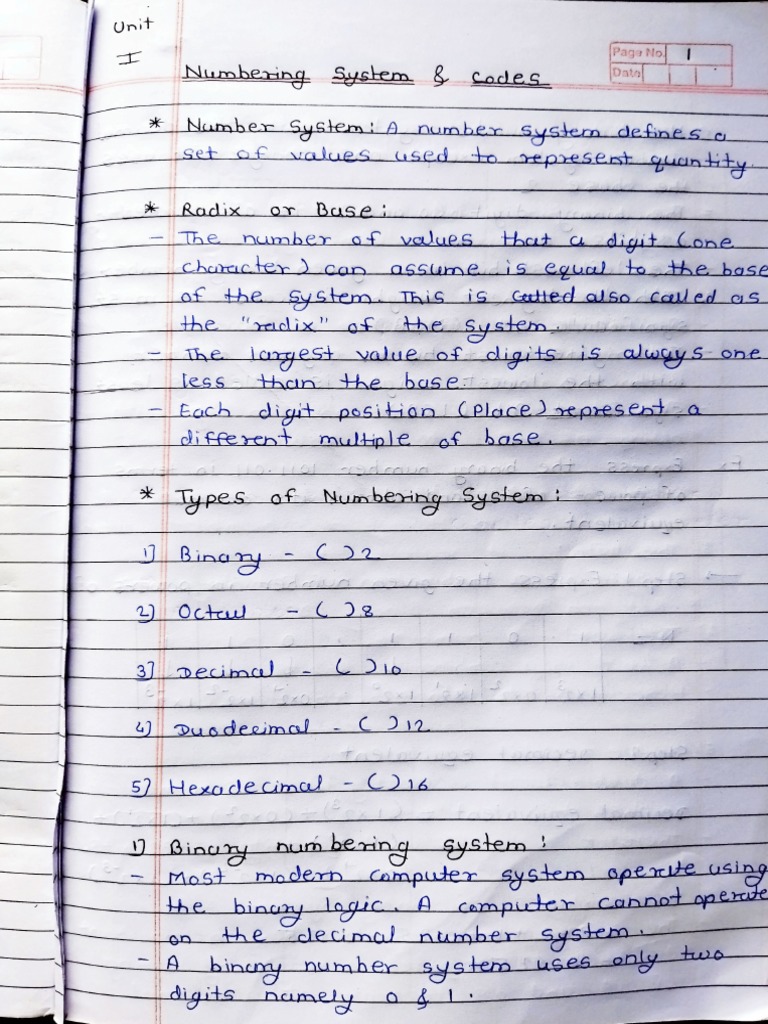 Unit
I
Page No. 1
Date
Numbering System & Codes
* Number System: A number system defines a
set of values used to represent quantity.
* Radix or Base:
- The number of values that a digit (one
character) can assume is equal to the base
of the system. This is called also called as
the "radix" of the system.
- The largest value of digits is always one
less than the base.
- Each digit position (place) represent a
different multiple of base.
* Types of Numbering System:
1) Binary - ( )2
2) Octal - ( )8
3) Decimal - ( )10
4) Duodecimal - ( )12
5) Hexadecimal - ( )16
1) Binary numbering system:
- Most modern computer system operate using
the binary logic. A computer cannot operate
on the decimal number system.
- A binary number system uses only two
digits namely 0 & 1.